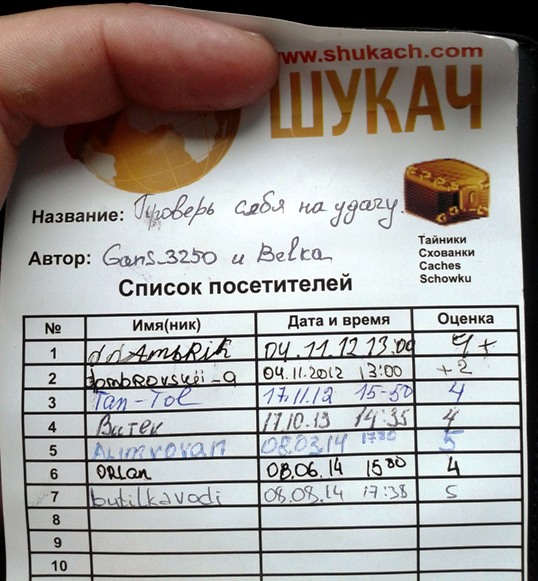 www.shukach.com
ШУКАЧ
Название: Проверь себя на удачу.
Тайники
Схованки
Caches
Schowku
Автор: Gans_3250 и Belka
Список посетителей
№ Имя(ник) Дата и время Оценка
1 04.11.12 13:00 4+
2 dombrovskii-a 04.11.2012 13:00 +2
3 Tan-Tol 17.11.12 15-50 4
4 Витек 17.10.13 14:35 4
5 08.03.14 5
6 ORlan 08.06.14 15 00 4
7 butilkavodi 08.08.14 17:38 5
8
9
10